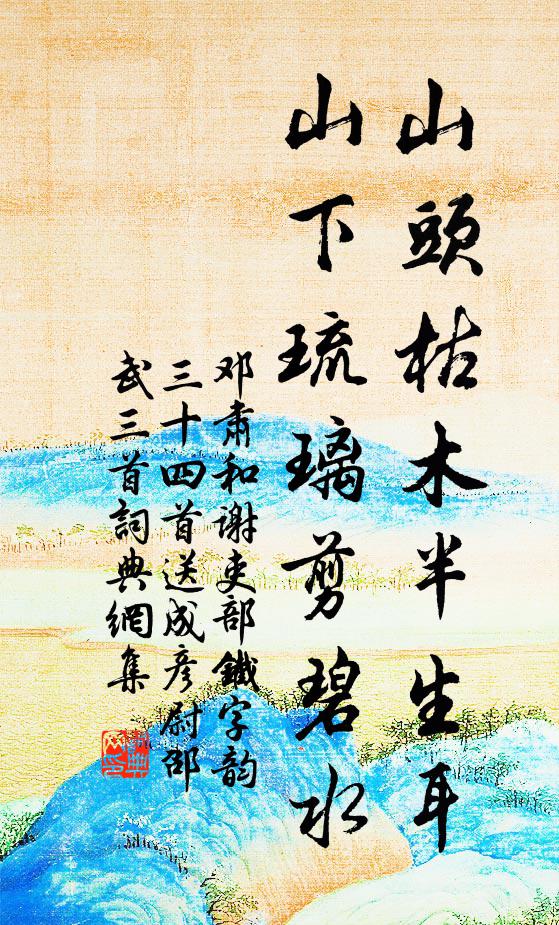 山頭枯木半生耳
山下琉璃剪碧水
邓肃和谢吏部鐵字韵
三十四首送成彦尉邵
武三首詞典網集